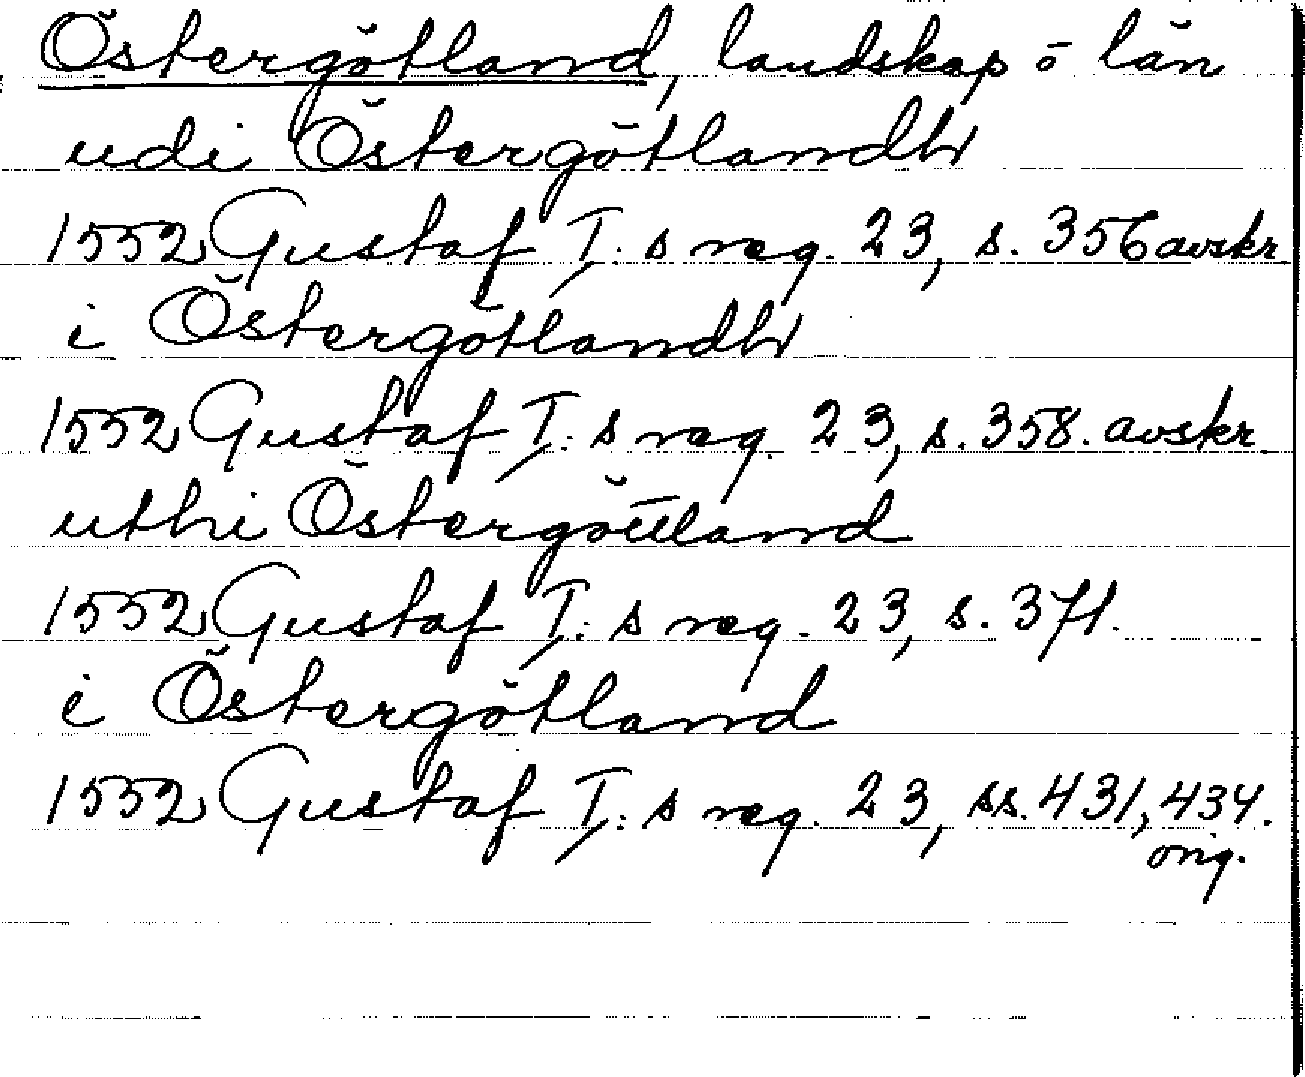 Östergötland, landskap o län
udi Östergötlandh
1552 Gustaf I: s reg. 23, s. 356 avskr
i Östergötlandh
1552 Gustaf I: s reg. 23, s. 358. avskr.
uthi Östergöttland
1552 Gustaf I: s reg. 23, s. 371.
i Östergötland
1552 Gustaf I: s reg. 23, ss. 431, 434.
orig.